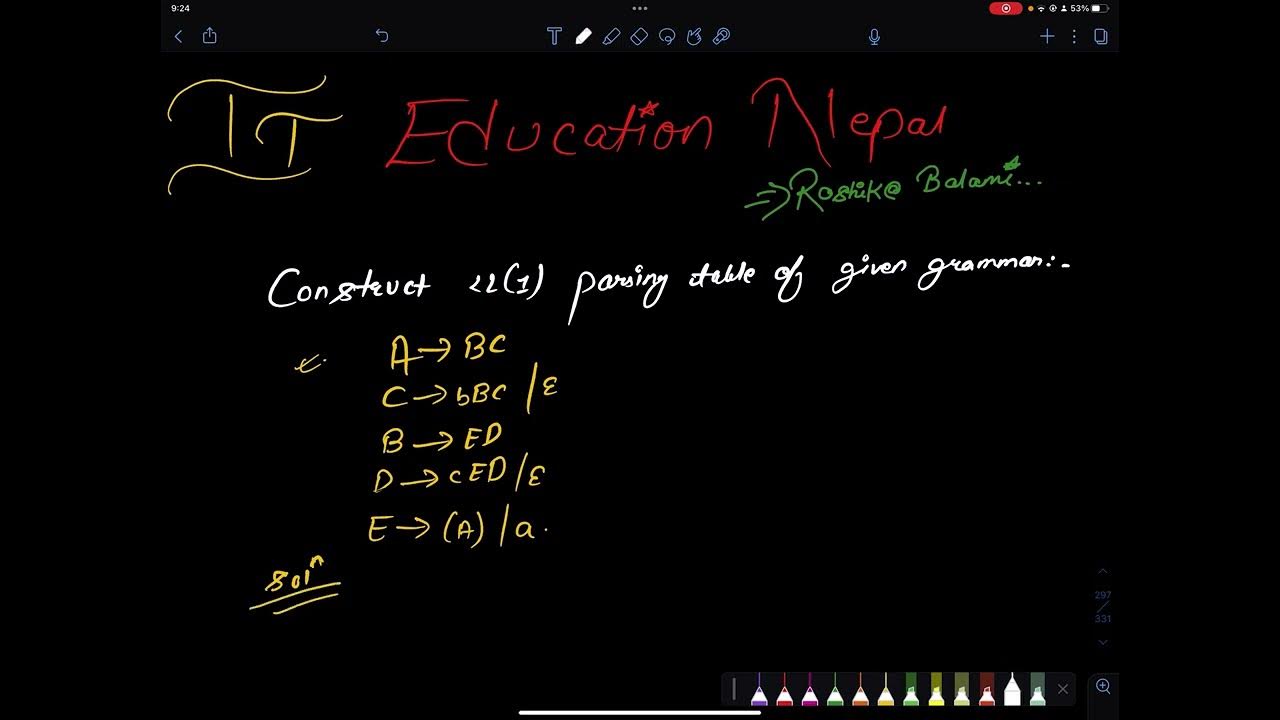 9:24
53%
IT Education Nepal
=> Roshik@ Balami...
Construct LL(1) parsing table of given grammar:-
A → BC
C → bBC / ε
B → ED
D → cED / ε
E → (A) / a.
Solⁿ
297
331